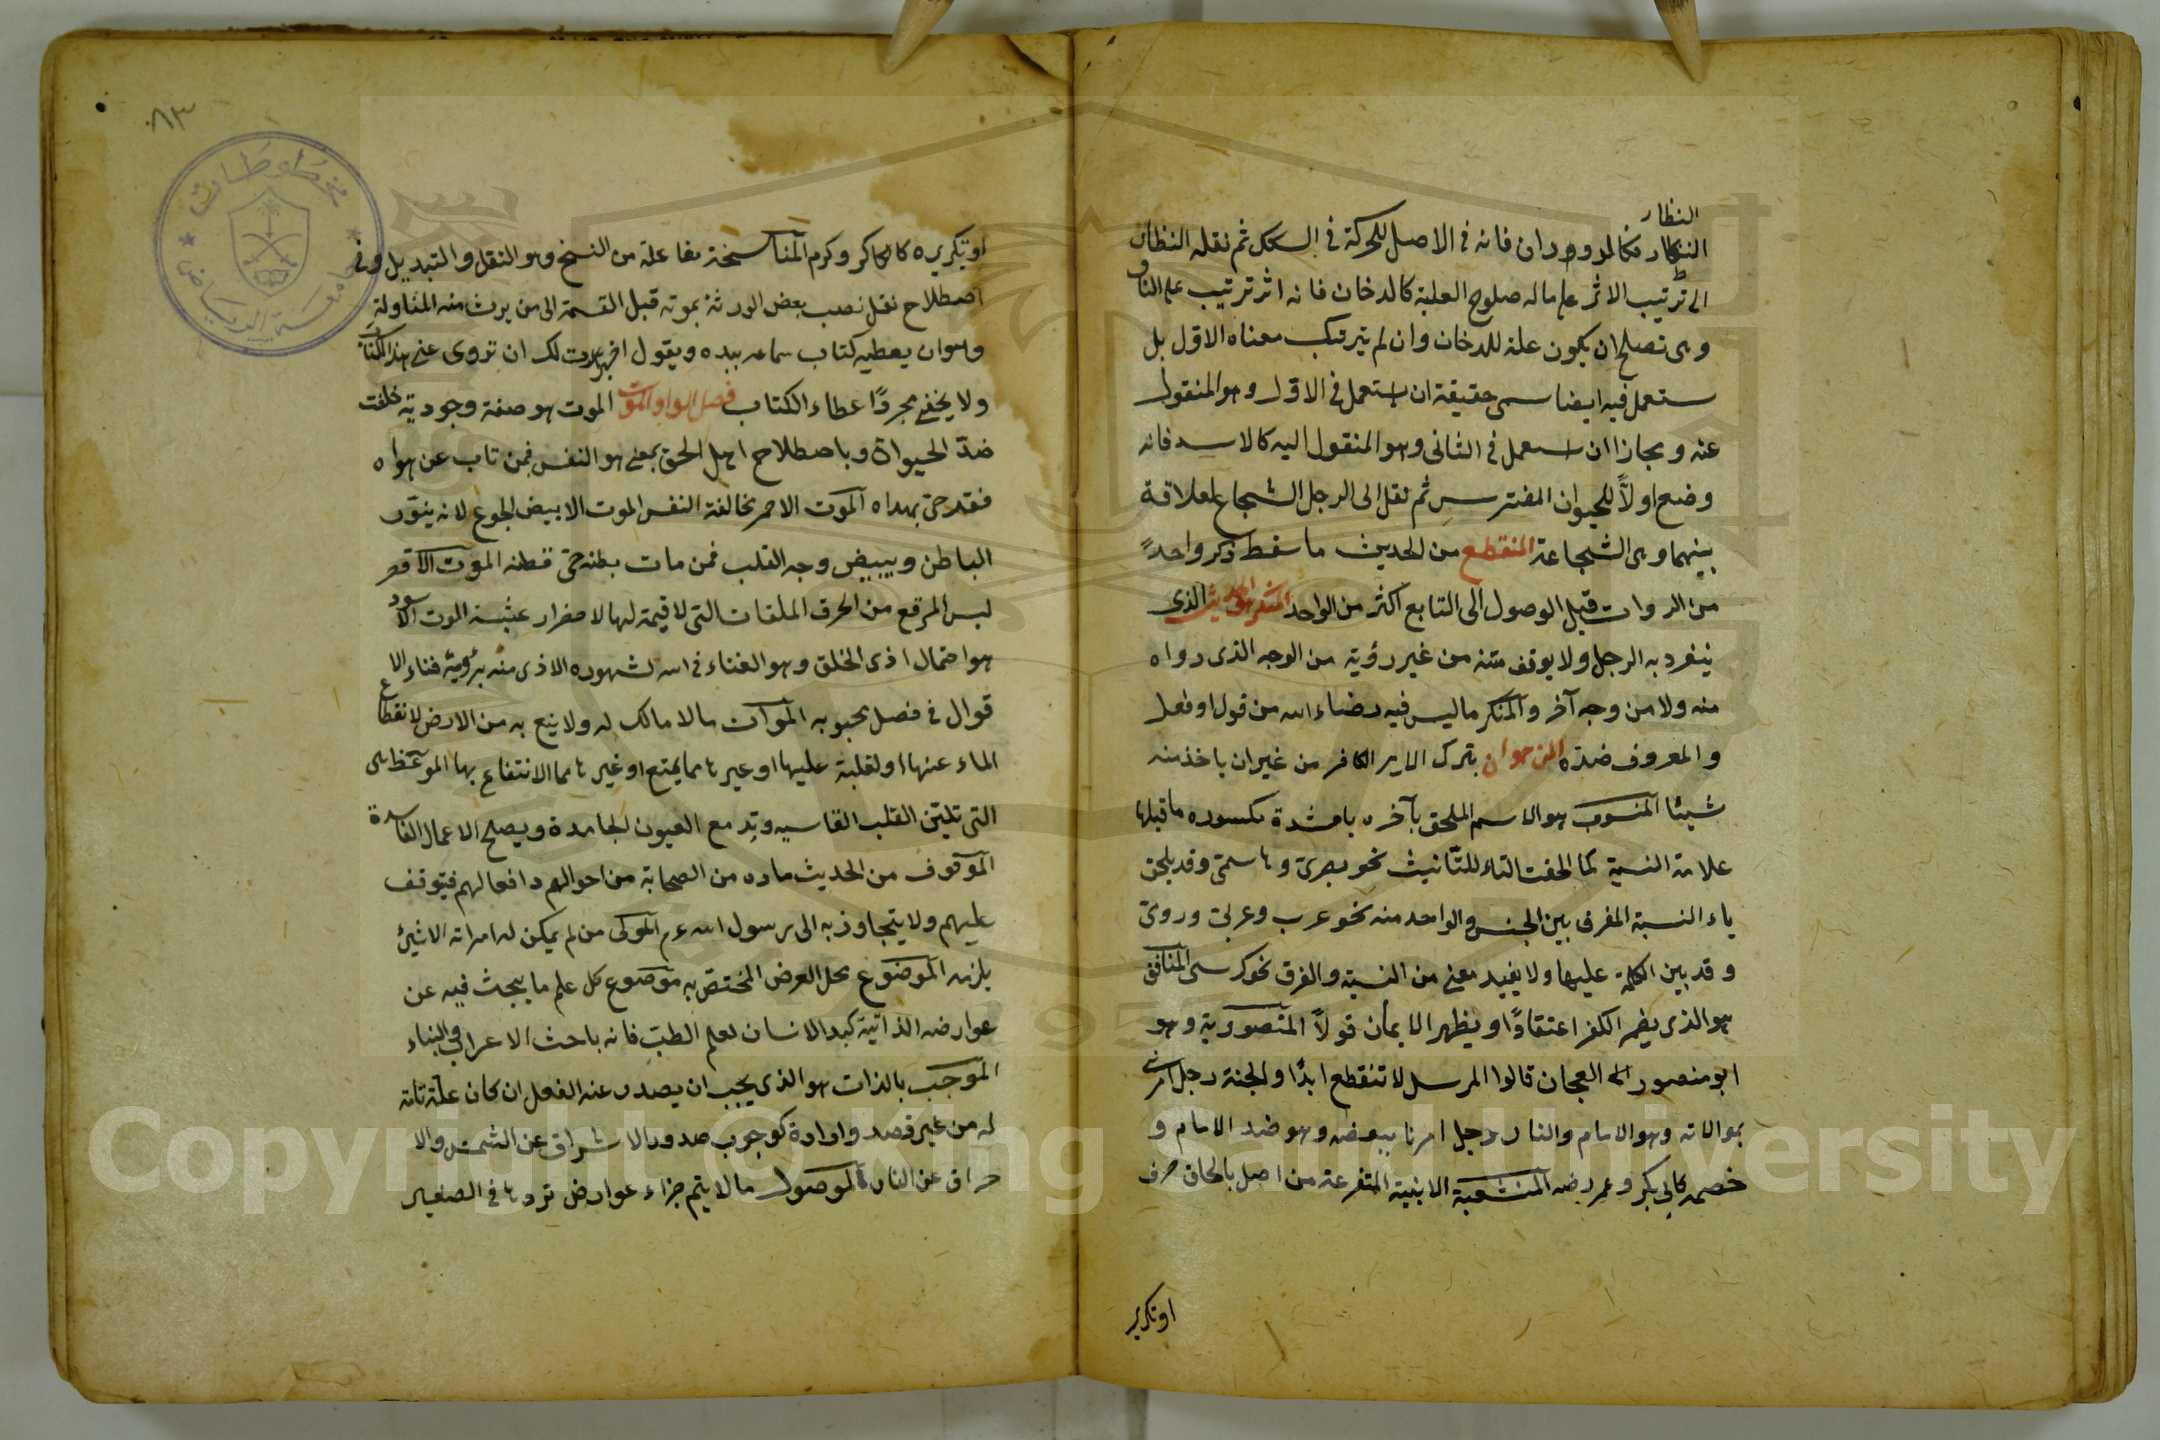 النظار
النكار فكالدوران فانه فى الاصل للحركة فى السكك ثم نقله النظار
الى ترتيب الاثر على ماله صلوح العلية كالدخان فانه اثر ترتيب على النار
وهى تصلح ان يكون علة للدخان وان لم يترك معناه الاول بل
يستعمل فيه ايضا سمى حقيقة ان استعمل فى الاول وهو المنقول
عنه ومجازا ان استعمل فى الثانى وهو المنقول اليه كالاسد فانه
وضع اولاً للحيوان المفترس ثم نقل الى الرجل الشجاع لعلاقة
بينهما وهى الشجاعة المنقطع من الحديث ما سقط ذكر واحد
من الروات قبل الوصول الى التابع اكثر من الواحد المنكر الحديث الذى
ينفرد به الرجل ولا يوقف متنه من غير رؤية من الوجه الذى رواه
منه ولا من وجه آخر والمنكر ما ليس فيه رضاء الله من قول او فعل
والمعروف ضده المن هو ان يترك الامير الكافر من غير ان ياخذ منه
شيئا المنسوب هو الاسم الملحق بآخره ياء مشدة مكسوره ما قبلها
علامة النسبة كما الحقت التاء للتانيث نحو بصرى وهاشمى وقد يلحق
ياء النسبة المفرق بين الجنس والواحد منه نحو عرب وعربى وروى
وقد بين الكلمة عليها ولا يفيد معنى من النسبة والفرق نحو كرسى المنافق
هو الذى يضمر الكفر اعتقادًا ويظهر الايمان قولاً المنصورية وهو
ابو منصور العجان قالوا المرسل لا تنقطع ابدًا والجنة رجل امرنا
بموالاته وهو الامام والنار رجل امرنا ببعضه وهو ضد الامام و
خصمه كابى بكر وعمر رضه المنشعبة الابنية المتفرعة من اصل بالحاق حرف
او تكرير
٨٣
او تكريره كاكرم وكرم المناسخة مفاعلة من النسخ وهو النقل والتبديل وفى
اصطلاح نقل نصيب بعض الورثة بموته قبل القسمة الى من يرث منه المناولة
وهو ان يعطيه كتاب سماعه بيده ويقول اجزت لك ان تروى عنى هذا الكتاب
ولا يخفى مجردًا عطاء الكتاب فصل الواو الموت الموت هو صفة وجودية خلقت
ضدّ الحيواة وباصطلاح اهل الحق بمعنى هو النفس فمن تاب عن هواه
فقد حى بهداه الموت الاحمر مخالفة النفس الموت الابيض الجوع لانه ينوّر
الباطن ويبيض وجه القلب فمن مات بطنه حى فطنه الموت الاقصر
لبس المرقع من الخرق الملقات التى لا قيمة لها لاصفرار عيشه الموت الاسود
هو احتمال اذى الخلق وهو الفناء فى الله لشهوده الاذى منه برؤية فناء الا
قوال فى فضل محبوبه الموات ما لا مالك له ولا ينع به من الارض لانقطاع
الماء عنها او لغلبة عليها او غيرها مما يمتع او غيرها مما الانتفاع بها الموعظة هى
التى تليّن القلب القاسيه وتدمع العيون الجامدة ويصلح الاعمال الفاسدة
الموقوف من الحديث ماده من الصحابة من احوالهم وافعالهم فيتوقف
عليهم ولا يتجاوز به الى رسول الله عم المولى من لم يمكن له امراته الا شئ
يلزمه الموضوع محل العرض المختص به موضوع كل علم ما يبحث فيه عن
عوارضه الذاتية كبد الانسان لعلم الطب فانه باحث الاعراب والبناء
الموجب بالذات هو الذى يجب ان يصدر عنه الفعل ان كان علة تامة
له من غير قصد وارادة كوجوب صدور الاشراق عن الشمس والا
حراق عن النار الموصول ما لا يتم جزاء عوارض تردها فى الصغير
Copyright © King Saud University